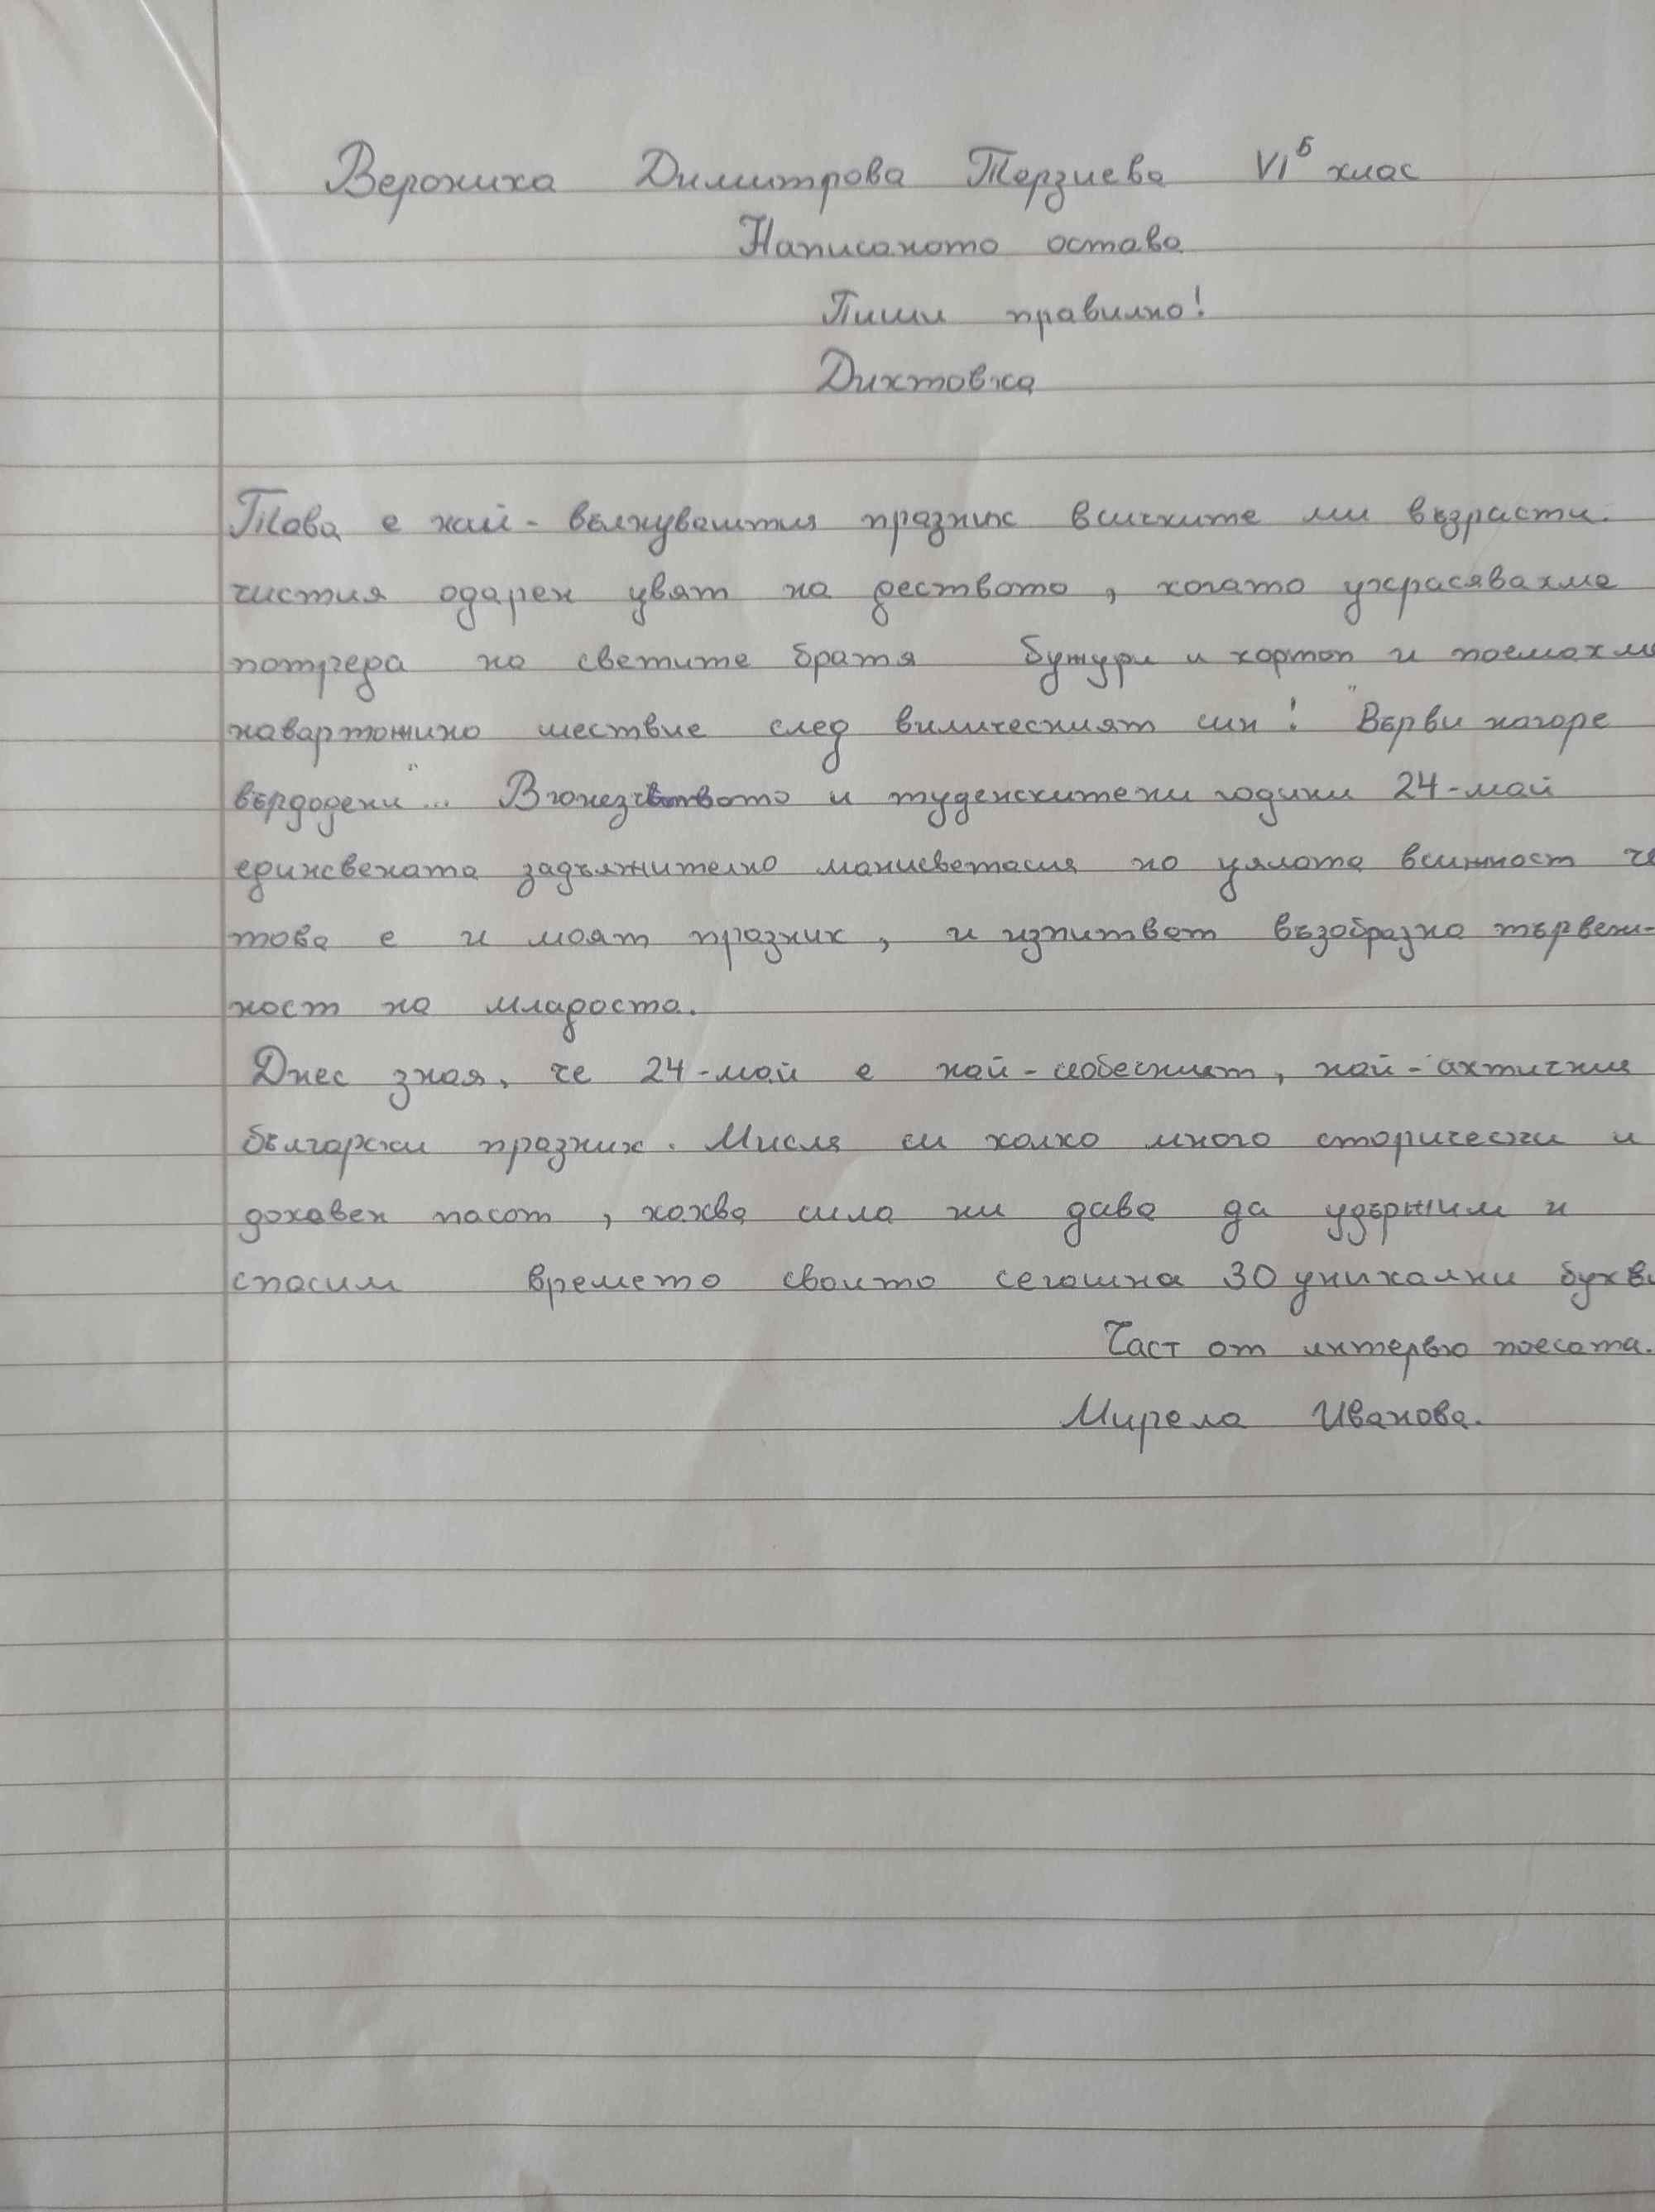 Вероника Димитрова Терзиева VI б клас
Написаното остава
Пиши правилно!
Диктовка
Това е най-вълнуващтия празник всичките ми възрасти.
чистия одарен цвят на деството, когато украсявахме
потрера на светите братя бужури и кортоп и поемахме
навартожино шествие след виличесният син! "Върви нагоре
върдодени"... Вюнезвотвото и туденскитени години 24-май
единсвената задължително манисветасия но цялата всижност че
това е и моят празник, и изпитвот възобразна тървени-
ност на младоста.
Днес зная, че 24-май е най-собесният, най-актичния
български празник. Мисля си колко много сторически и
доховен пасот, каква сила ни дава да удържим и
спасим времето своито сегашна 30 уникални букви
Част от интервю поесата.
Мирела Иванова.